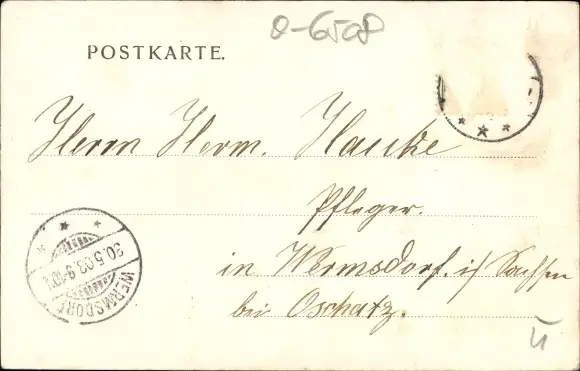 0-6508
POSTKARTE.
Herrn Herm. Hauke
Pfleger.
in Wermsdorf. i/ Sachsen
bei Oschatz.
WERMSDORF
30.5.03.